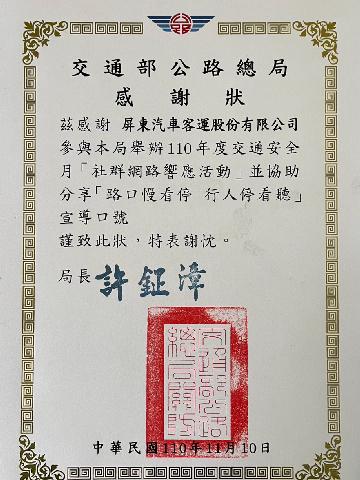 交通部公路總局
感謝狀
茲感謝 屏東汽車客運股份有限公司
參與本局舉辦110年度交通安全
月「社群網路響應活動」並協助
分享「路口慢看停 行人停看聽」
宣導口號
謹致此狀，特表謝忱。
局長 許鉦漳
中華民國110年11月10日